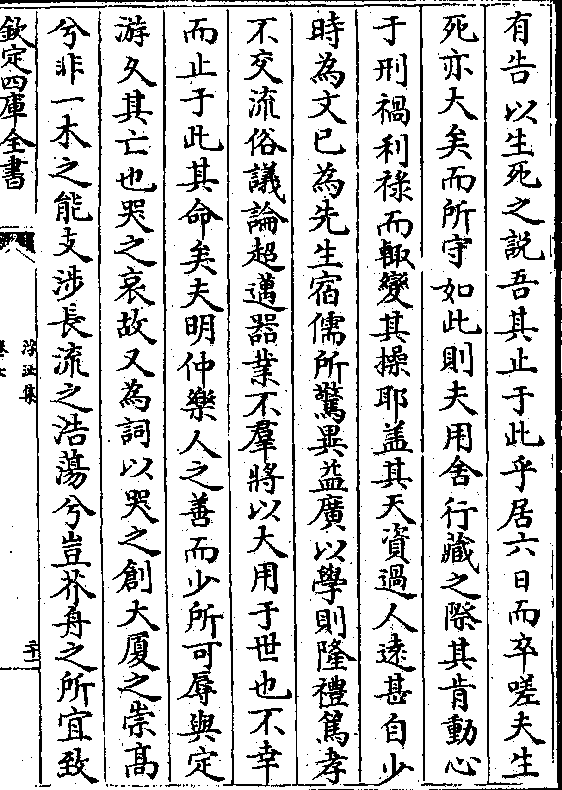 有告以生死之說吾其止于此乎居六日而卒嗟夫生
死亦大矣而所守如此則夫用舍行藏之際其肯動心
于刑禍利祿而輙變其操耶盖其天資過人逺甚自少
時為文已為先生宿儒所驚異益廣以學則隆禮篤孝
不交流俗議論超邁器業不羣將以大用于世也不幸
而止于此其命矣夫明仲樂人之善而少所可辱與定
游久其亡也哭之哀故又為詞以哭之創大厦之崇高
兮非一木之能支涉長流之浩蕩兮豈芥舟之所宜致
欽定四庫全書